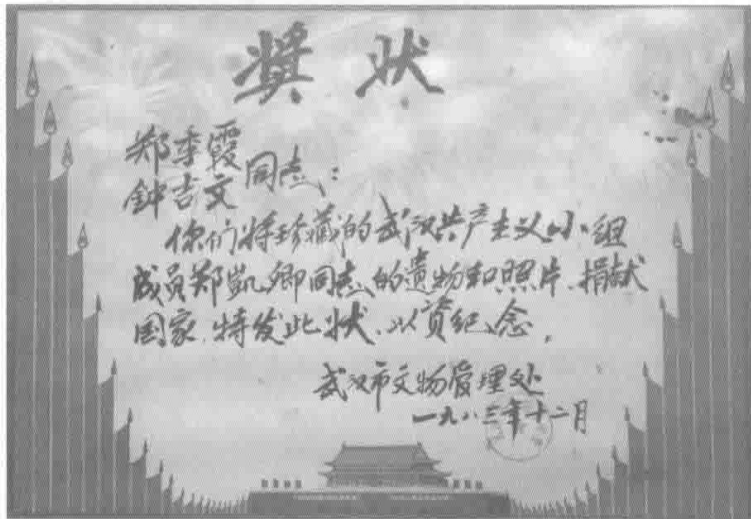 奖状
郑季霞
钟吉文 同志：
你们将珍藏的武汉共产主义小组
成员郑凯卿同志的遗物和照片、捐献
国家，特发此状、以资纪念。
武汉市文物管理处
一九八三年十二月